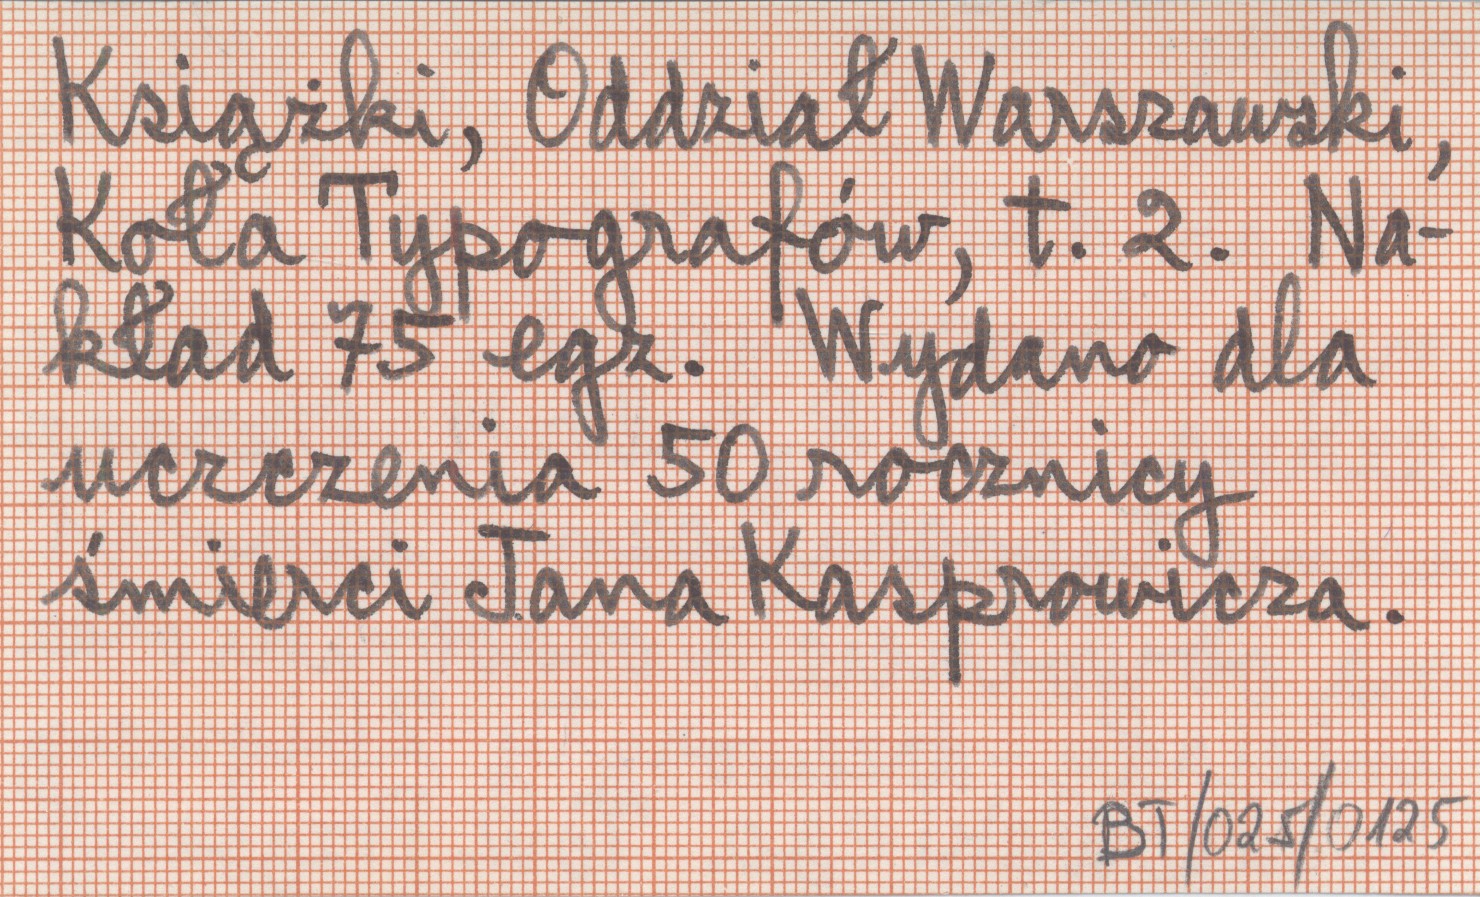 Książki, Oddział Warszawski,
Koła Typografów, t. 2. Na-
kład 75 egz. Wydano dla
uczczenia 50 rocznicy
śmierci Jana Kasprowicza.
BT/025/0125